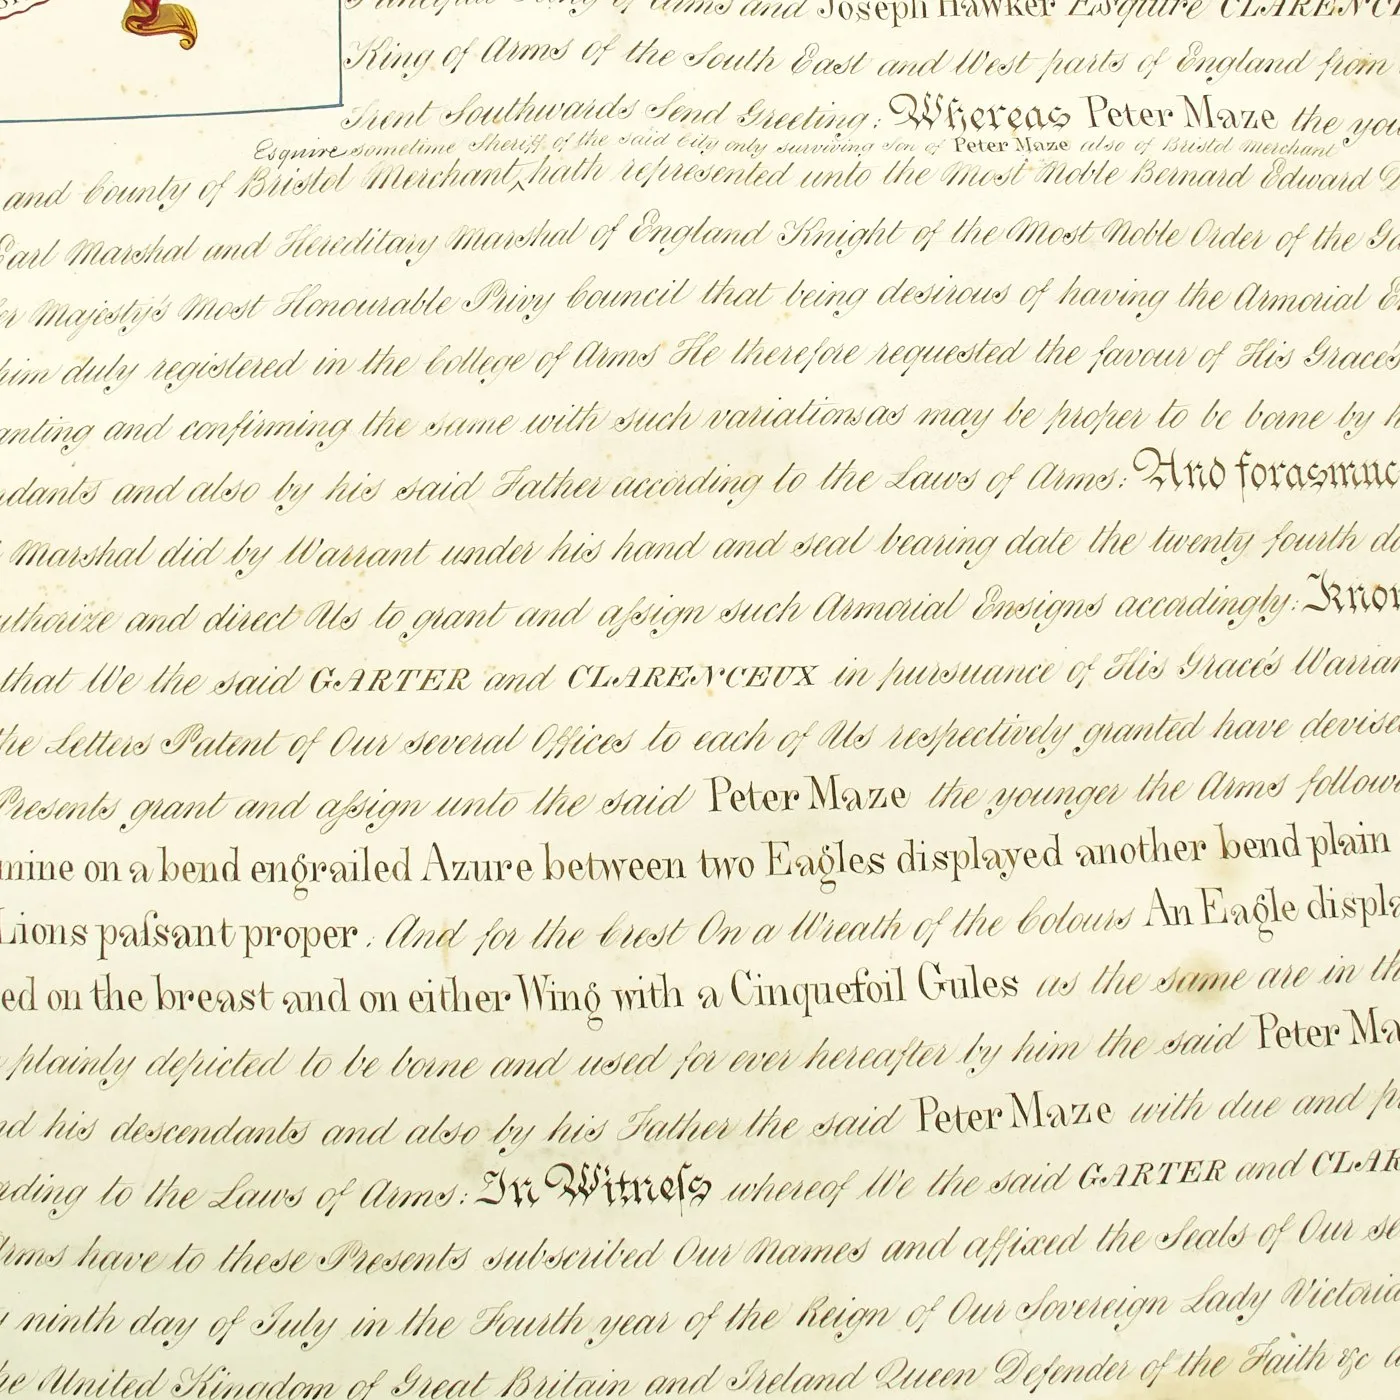 Principal King of Arms and Joseph Hawker Esquire CLARENC
King of Arms of the South East and West parts of England from
Trent Southwards Send Greeting: Whereas Peter Maze the you
Esquire sometime Sheriff of the said City only surviving Son of Peter Maze also of Bristol Merchant
and County of Bristol Merchant, hath represented unto the Most Noble Bernard Edward D
Earl Marshal and Hereditary Marshal of England Knight of the Most Noble Order of the Ga
er Majesty's Most Honourable Privy Council that being desirous of having the Armorial E
him duly registered in the College of Arms He therefore requested the favour of His Grace's
anting and confirming the same with such variations as may be proper to be borne by h
ndants and also by his said Father according to the Laws of Arms: And forasmuc
Marshal did by Warrant under his hand and seal bearing date the twenty fourth da
uthorize and direct Us to grant and aſsign such Armorial Ensigns accordingly: Know
that We the said GARTER and CLARENCEUX in pursuance of His Grace's Warran
the Letters Patent of Our several Offices to each of Us respectively granted have devise
Presents grant and aſsign unto the said Peter Maze the younger the Arms follow
mine on a bend engrailed Azure between two Eagles displayed another bend plain
Lions paſsant proper. And for the Crest On a Wreath of the Colours An Eagle displa
ed on the breast and on either Wing with a Cinquefoil Gules as the same are in th
plainly depicted to be borne and used for ever hereafter by him the said Peter Ma
nd his descendants and also by his Father the said Peter Maze with due and p
rding to the Laws of Arms: In Witneſs whereof We the said GARTER and CLAR
Arms have to these Presents subscribed Our Names and affixed the Seals of Our se
y ninth day of July in the Fourth year of the Reign of Our Sovereign Lady Victoria
he United Kingdom of Great Britain and Ireland Queen Defender of the Faith &c